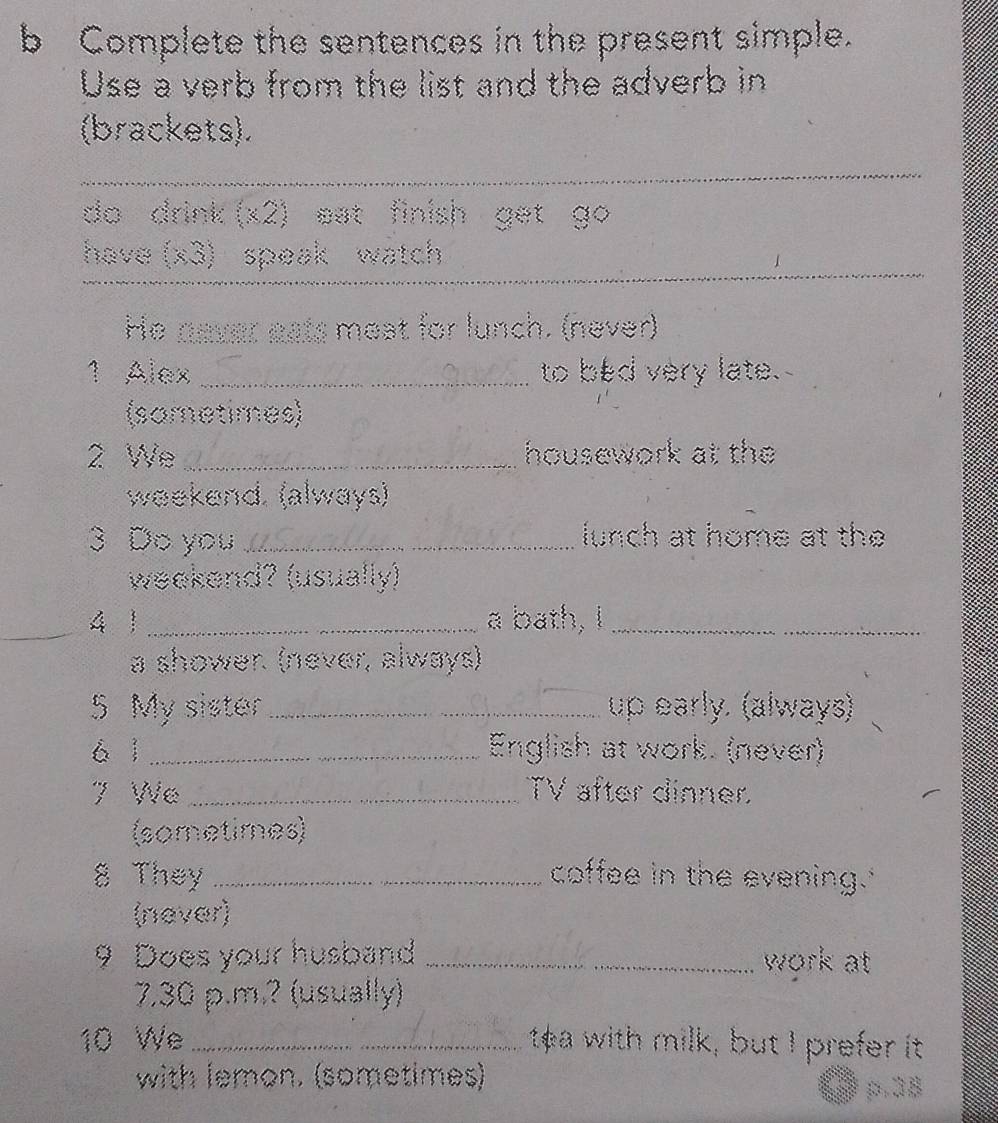 b Complete the sentences in the present simple.
Use a verb from the list and the adverb in
(brackets).
do drink (x2) eat finish get go
have (x3) speak watch
He never eats meat for lunch. (never)
1 Alex goes to bed very late.
(sometimes)
2 We always finish housework at the
weekend. (always)
3 Do you usually have lunch at home at the
weekend? (usually)
4 I a bath, I
a shower. (never, always)
5 My sister get up early. (always)
6 I English at work. (never)
7 We TV after dinner.
(sometimes)
8 They coffee in the evening.
(never)
9 Does your husband usually work at
7.30 p.m.? (usually)
10 We tea with milk, but I prefer it
with lemon. (sometimes)
p.38